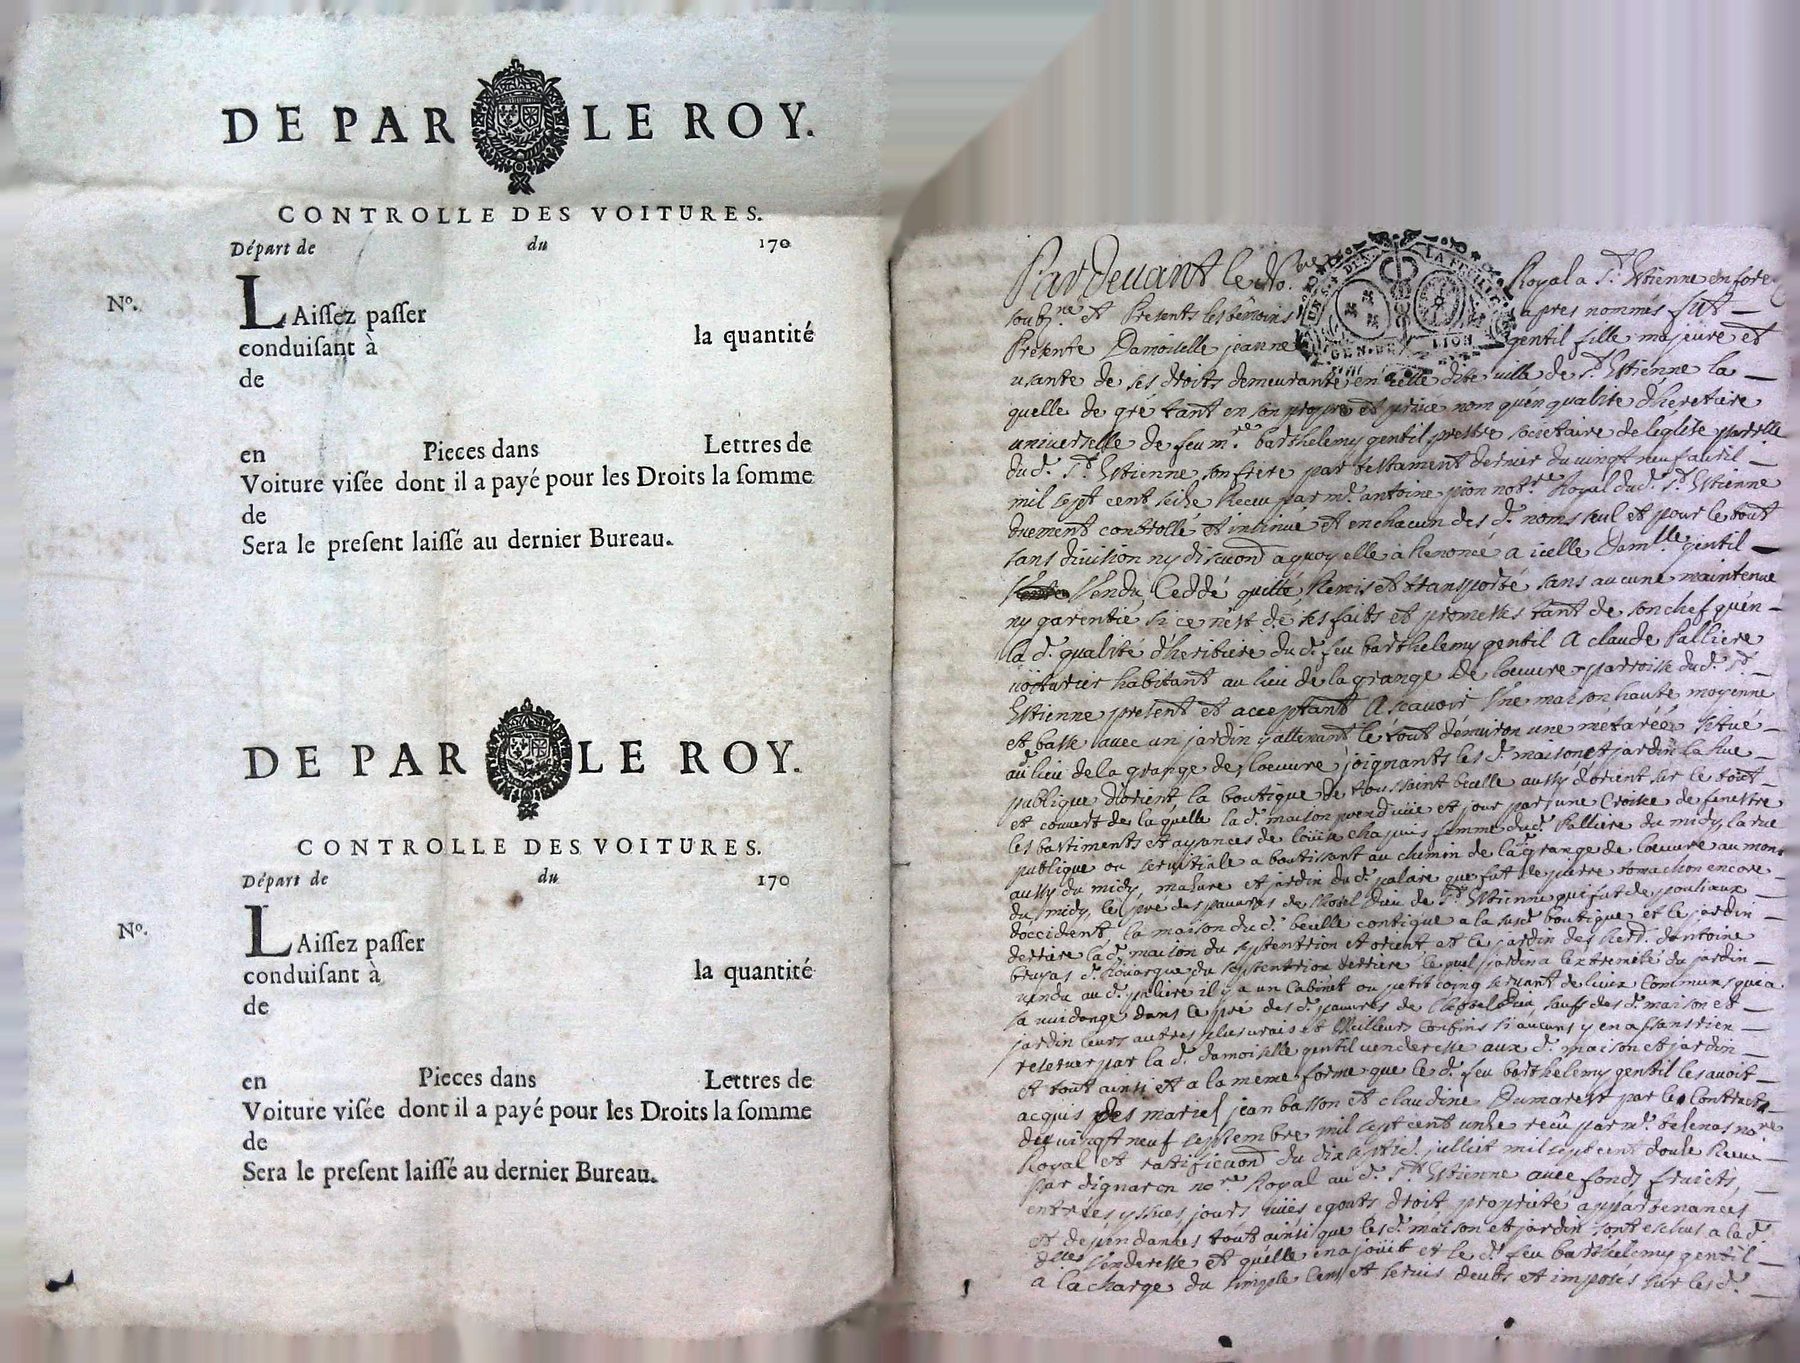 DE PAR LE ROY.
CONTROLLE DES VOITURES.
Départ de du 170
Nº.
LAissez passer
conduisant à la quantité
de
en Pieces dans Lettres de
Voiture visée dont il a payé pour les Droits la somme
de
Sera le present laissé au dernier Bureau.
DE PAR LE ROY.
CONTROLLE DES VOITURES.
Départ de du 170
Nº.
LAissez passer
conduisant à la quantité
de
en Pieces dans Lettres de
Voiture visée dont il a payé pour les Droits la somme
de
Sera le present laissé au dernier Bureau.
Par devant le No.re Royal a St. Estienne en forez
soubz.ne et Presents les temoins apres nommés fut
GEN. DE LION
Presente Damoiselle jeanne gentil fille majeure et
usante de ses droits demeurante en celle dite ville de St. Estienne la
quelle de gré tant en son propre et privé nom qu'en qualité d'heretiere
universelle de feu mre. barthelemy gentil prestre societaire de leglise parr.lle
dud. St. Estienne son frere par testament dernier du vingt neuf avril
mil sept cent seize Receu par me. antoine pion notre. Royal dud. St. Estienne
duement controllé et insinué et en chacun des d. noms seul et pour le tout
sans division ny discution a quoy elle a Renoncé a icelle Dam.lle gentil
Vendu Ceddé quitté Remis et transporté sans aucune maintenue
ny garentie si ce n'est de ses faits et promesses tant de son chef qu'en
la d. qualité d'heritiere dud. feu barthelemy gentil A claude Palliere
voiturier habitant au lieu de la grange de loeuvre parroisse dud. St.
Estienne present et acceptant Ascavoir Une maison haute moyenne
et basse avec un jardin y attenant le tout denviron une metarée situé
au lieu de la grange de loeuvre joignants les d. maison et jardin la Rue
publique d'orient la boutique de toussaint beulle aussy d'orient sur le tout
et couvert de laquelle la d. maison prend vüe et jour par une Croisée de fenestre
les bastiments et aysances de loüise chapuis femme dud. Palliere du midy la rue
publique ou serviziale aboutissant au chemin de la grange de loeuvre au mont
aussy du midy, masure et jardin dud. palare que fut de pierre romachon encore
du midy, le pré des pauvres de lhotel dieu de St. Estienne qui fut de
d'occident la maison dud. beulle contigue a la susd. boutique et le jardin
derriere lad. maison du septentrion et orient et le jardin des herd. dantoine
bruyas d. Rouargue du septentrion derriere lequel jardin a lextremité du jardin
vendu aud. paliere il y a un Cabinet ou petit coing servant de lieux Communs qui a
sa vuidange dans le pré des d. pauvres de lhostel Dieu, sauf des d. maison et
jardin leurs autres plus vrais et Meilleurs Confins si aucuns y en a sans rien
reserver par la d. damoiselle gentil venderesse aux d. maison et jardin
et tout ainsi et a la meme forme que le d. feu barthelemy gentil les avoit
acquis des mariés jean basson et claudine Dumarest par le Contract
du vingt neuf septembre mil sept cent unze reçu par me. no.re
Royal et ratificaon du dix sept d. julliet mil sept cent douze Receu
par dignaron no.re Royal aud. St. Estienne avec fonds fruicts,
entrées yssues jours vües egouts droit propriété appartenances
et dependances tout ainsi que les d. maison et jardin sont eschus a la d.
dlle. Venderesse et quelle en a joüit et le d. feu barthelemy gentil
a la charge du simple Cens et servis deubs et imposés sur les d.